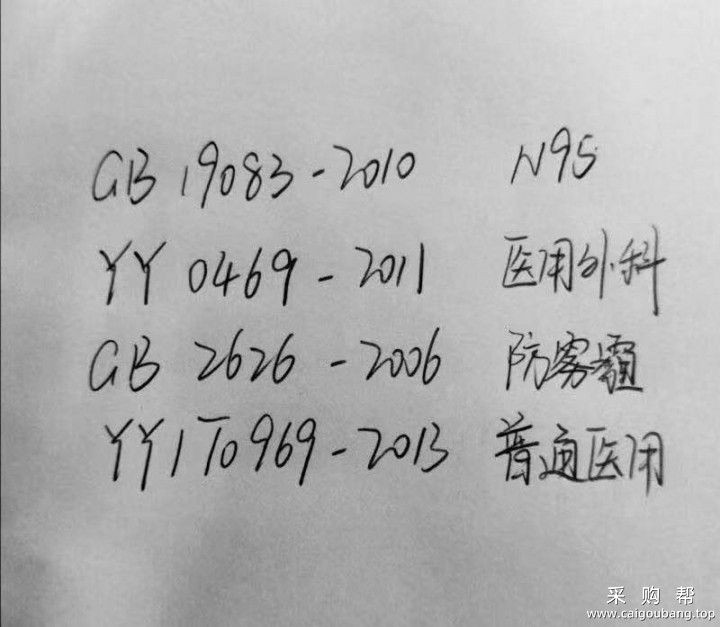 GB 19083-2010 N95
YY 0469-2011 医用外科
GB 2626-2006 防雾霾
YY/T0969-2013 普通医用
采购帮
www.caigoubang.top